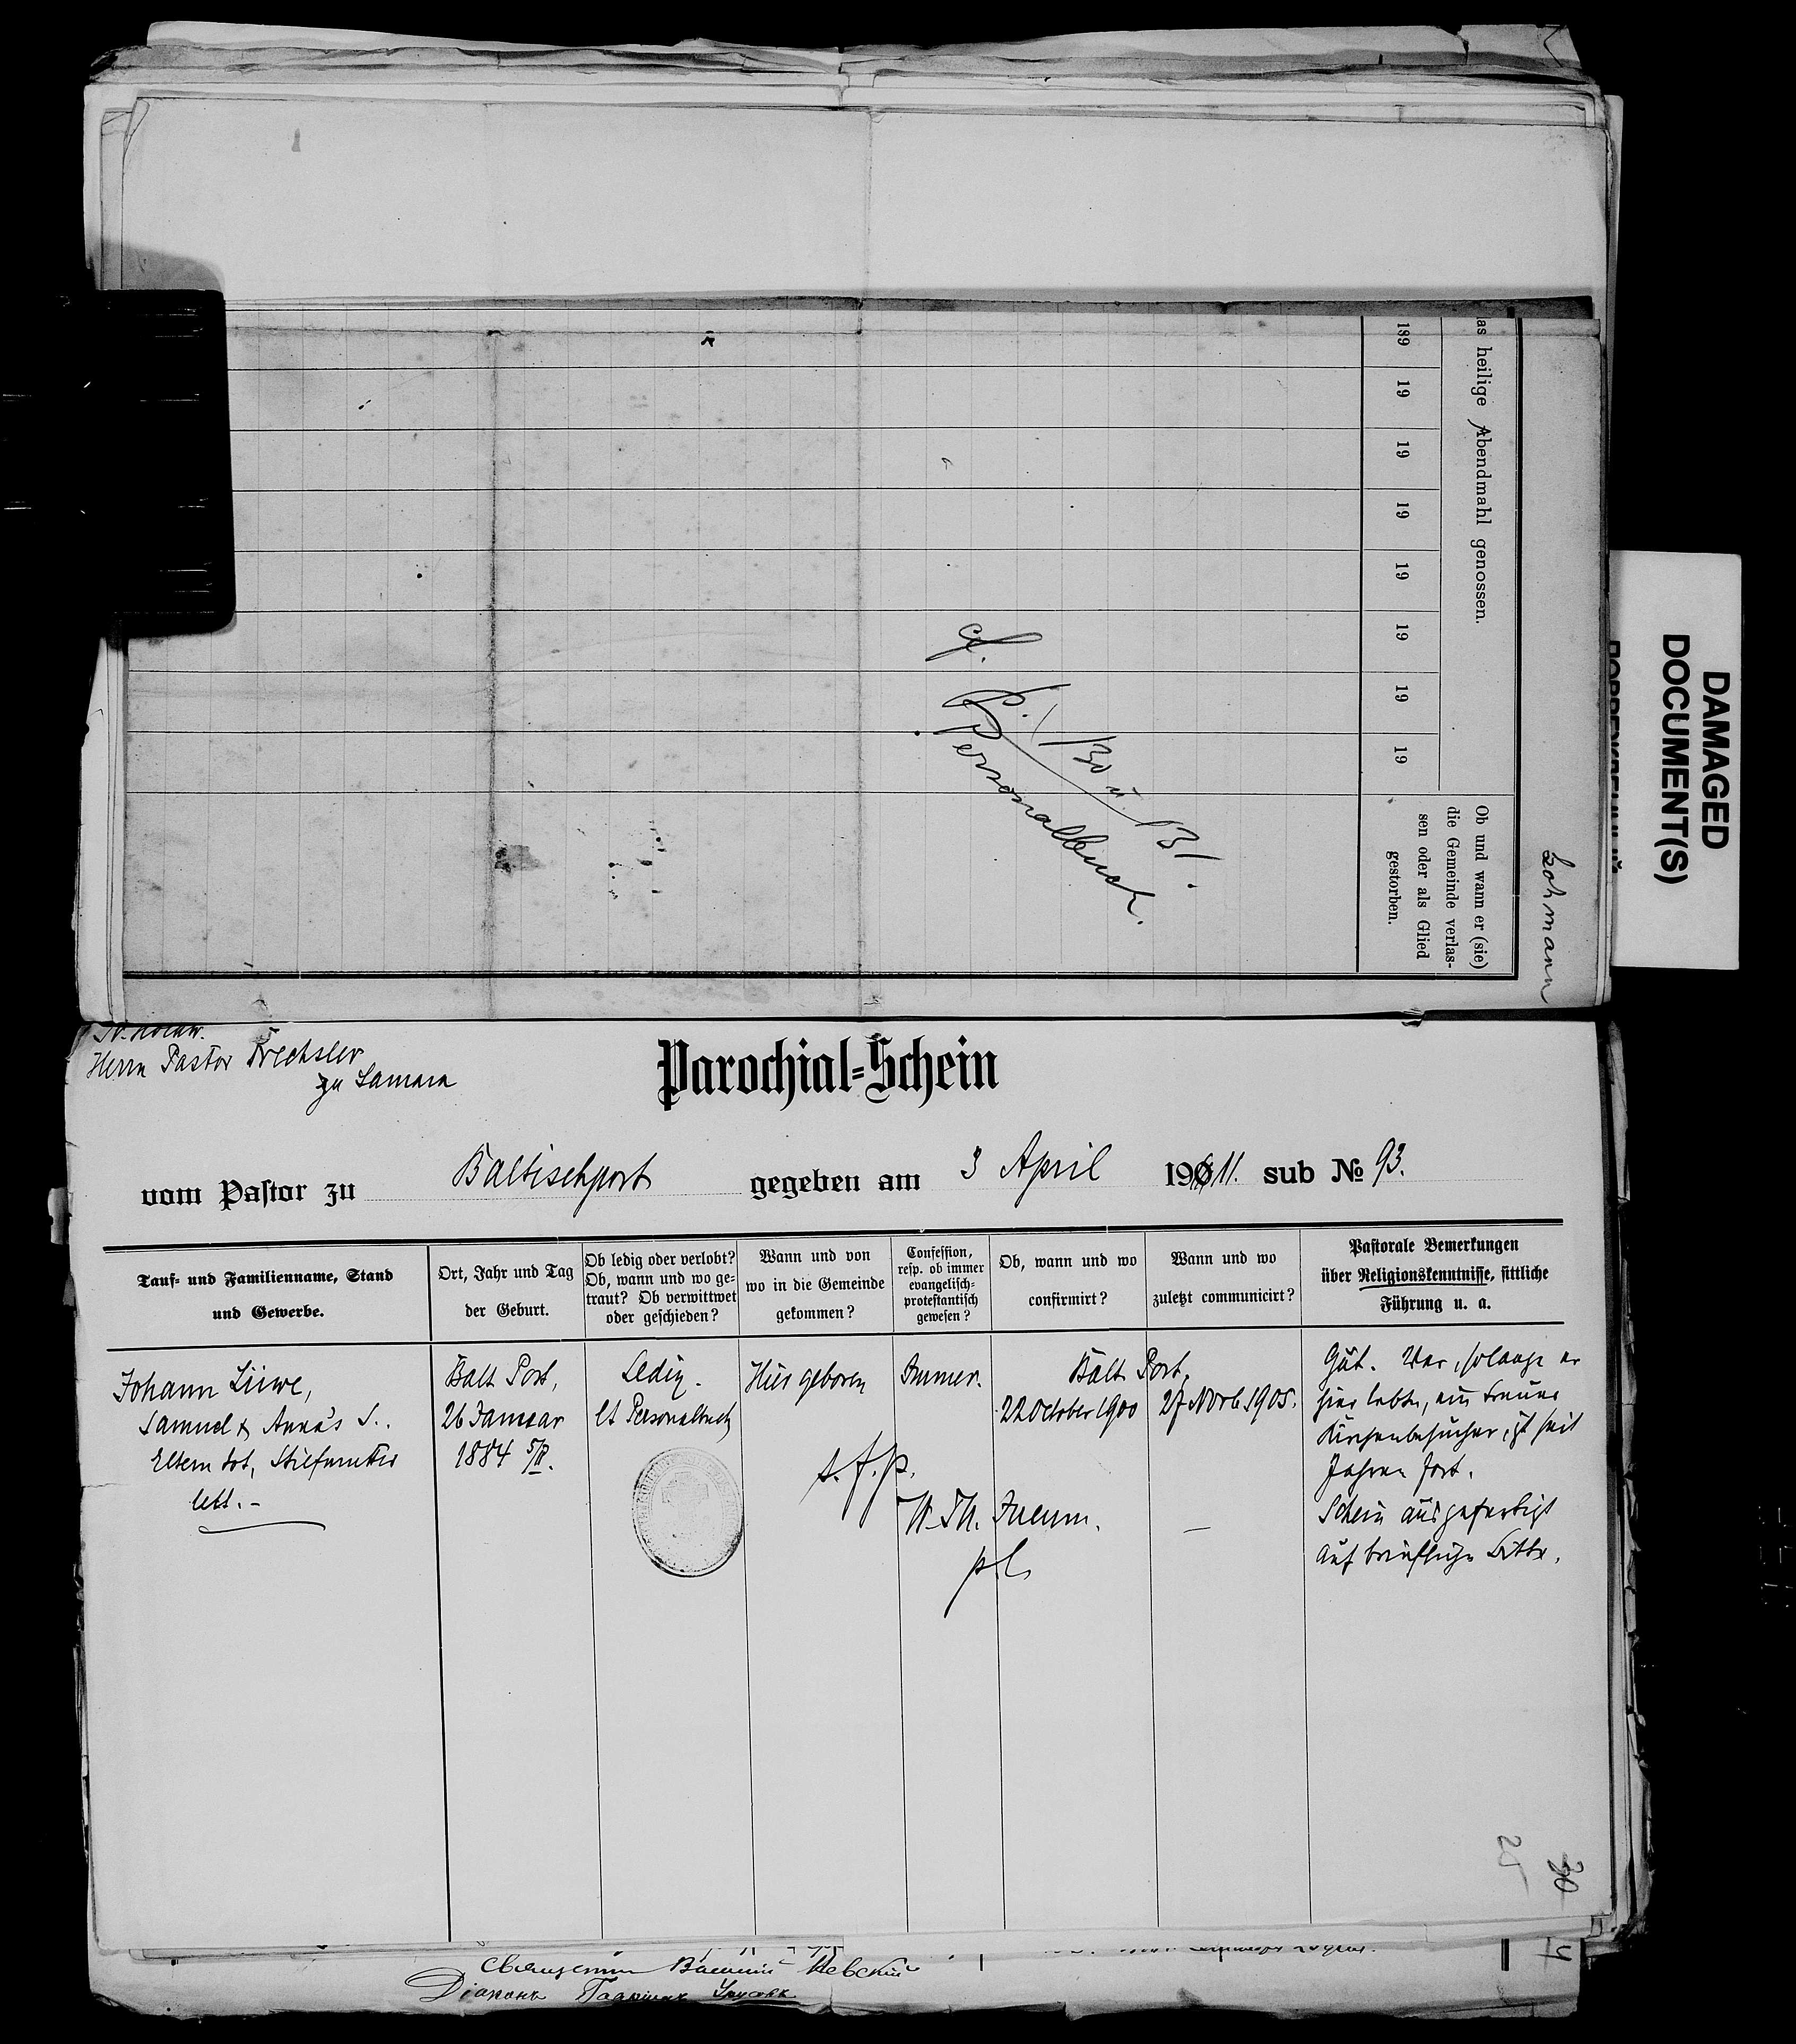 das heilige Abendmahl genossen.
189
19
19
19
19
19
19
19
Ob und wann er (sie)
die Gemeinde verlas-
sen oder als Glied
gestorben.
Lohmann
cf.
p. 130 u. 131.
Personalbuch.
DAMAGED
DOCUMENT(S)
Herrn Pastor Drechsler
zu Samara
Parochial-Schein
vom Pastor zu Baltischport gegeben am 3 April 1911. sub № 93.
Tauf- und Familienname, Stand
und Gewerbe.
Ort, Jahr und Tag
der Geburt.
Ob ledig oder verlobt?
Ob, wann und wo ge-
traut? Ob verwittwet
oder geschieden?
Wann und von
wo in die Gemeinde
gekommen?
Confession,
resp. ob immer
evangelisch-
protestantisch
gewesen?
Ob, wann und wo
confirmirt?
Wann und wo
zuletzt communicirt?
Pastorale Bemerkungen
über Religionskenntnisse, sittliche
Führung u. a.
Johann Liiwe,
Samuel & Anna's S.
Eltern tot, Stiefmutter
lebt. -
Balt Port,
26 Januar
1884 5/II.
Ledig.
lt Personalbuch
Hier geboren
Immer.
Balt Port,
22 October 1900
27 Novb. 1905.
Gut. War, solange er
hier lebte, ein treuer
Kirchenbesucher, ist seit
Jahren fort.
Schein ausgefertigt
auf briefliche Bitte.
s. f. p.
p.l.
25
30
Священникъ Василій Невскій
Діаконъ